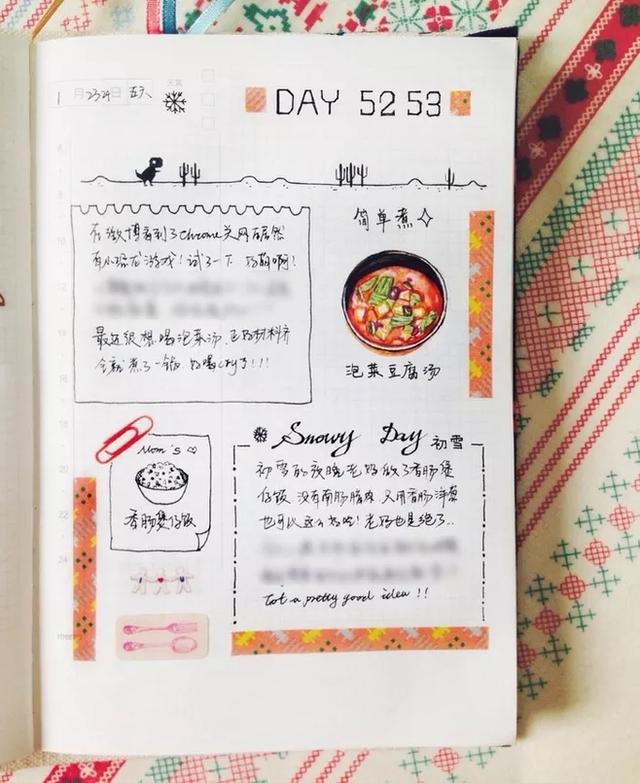 1月23 24日 五六
天气
DAY 52 53
在微博看到了Chrome关网居然
有小恐龙游戏！试了一下 巧萌啊！
最近很想喝泡菜汤 正好材料齐
全就煮了一锅 好喝cry了!!!
简单煮
泡菜豆腐汤
Mom's ♡
香肠煲仔饭
Snowy Day 初雪
初雪的夜晚老妈做了香肠煲
仔饭 没有南肠腊肉 只用香肠洋葱
也可以这么好吃！老妈也是绝了..
Got a pretty good idea !!
memo